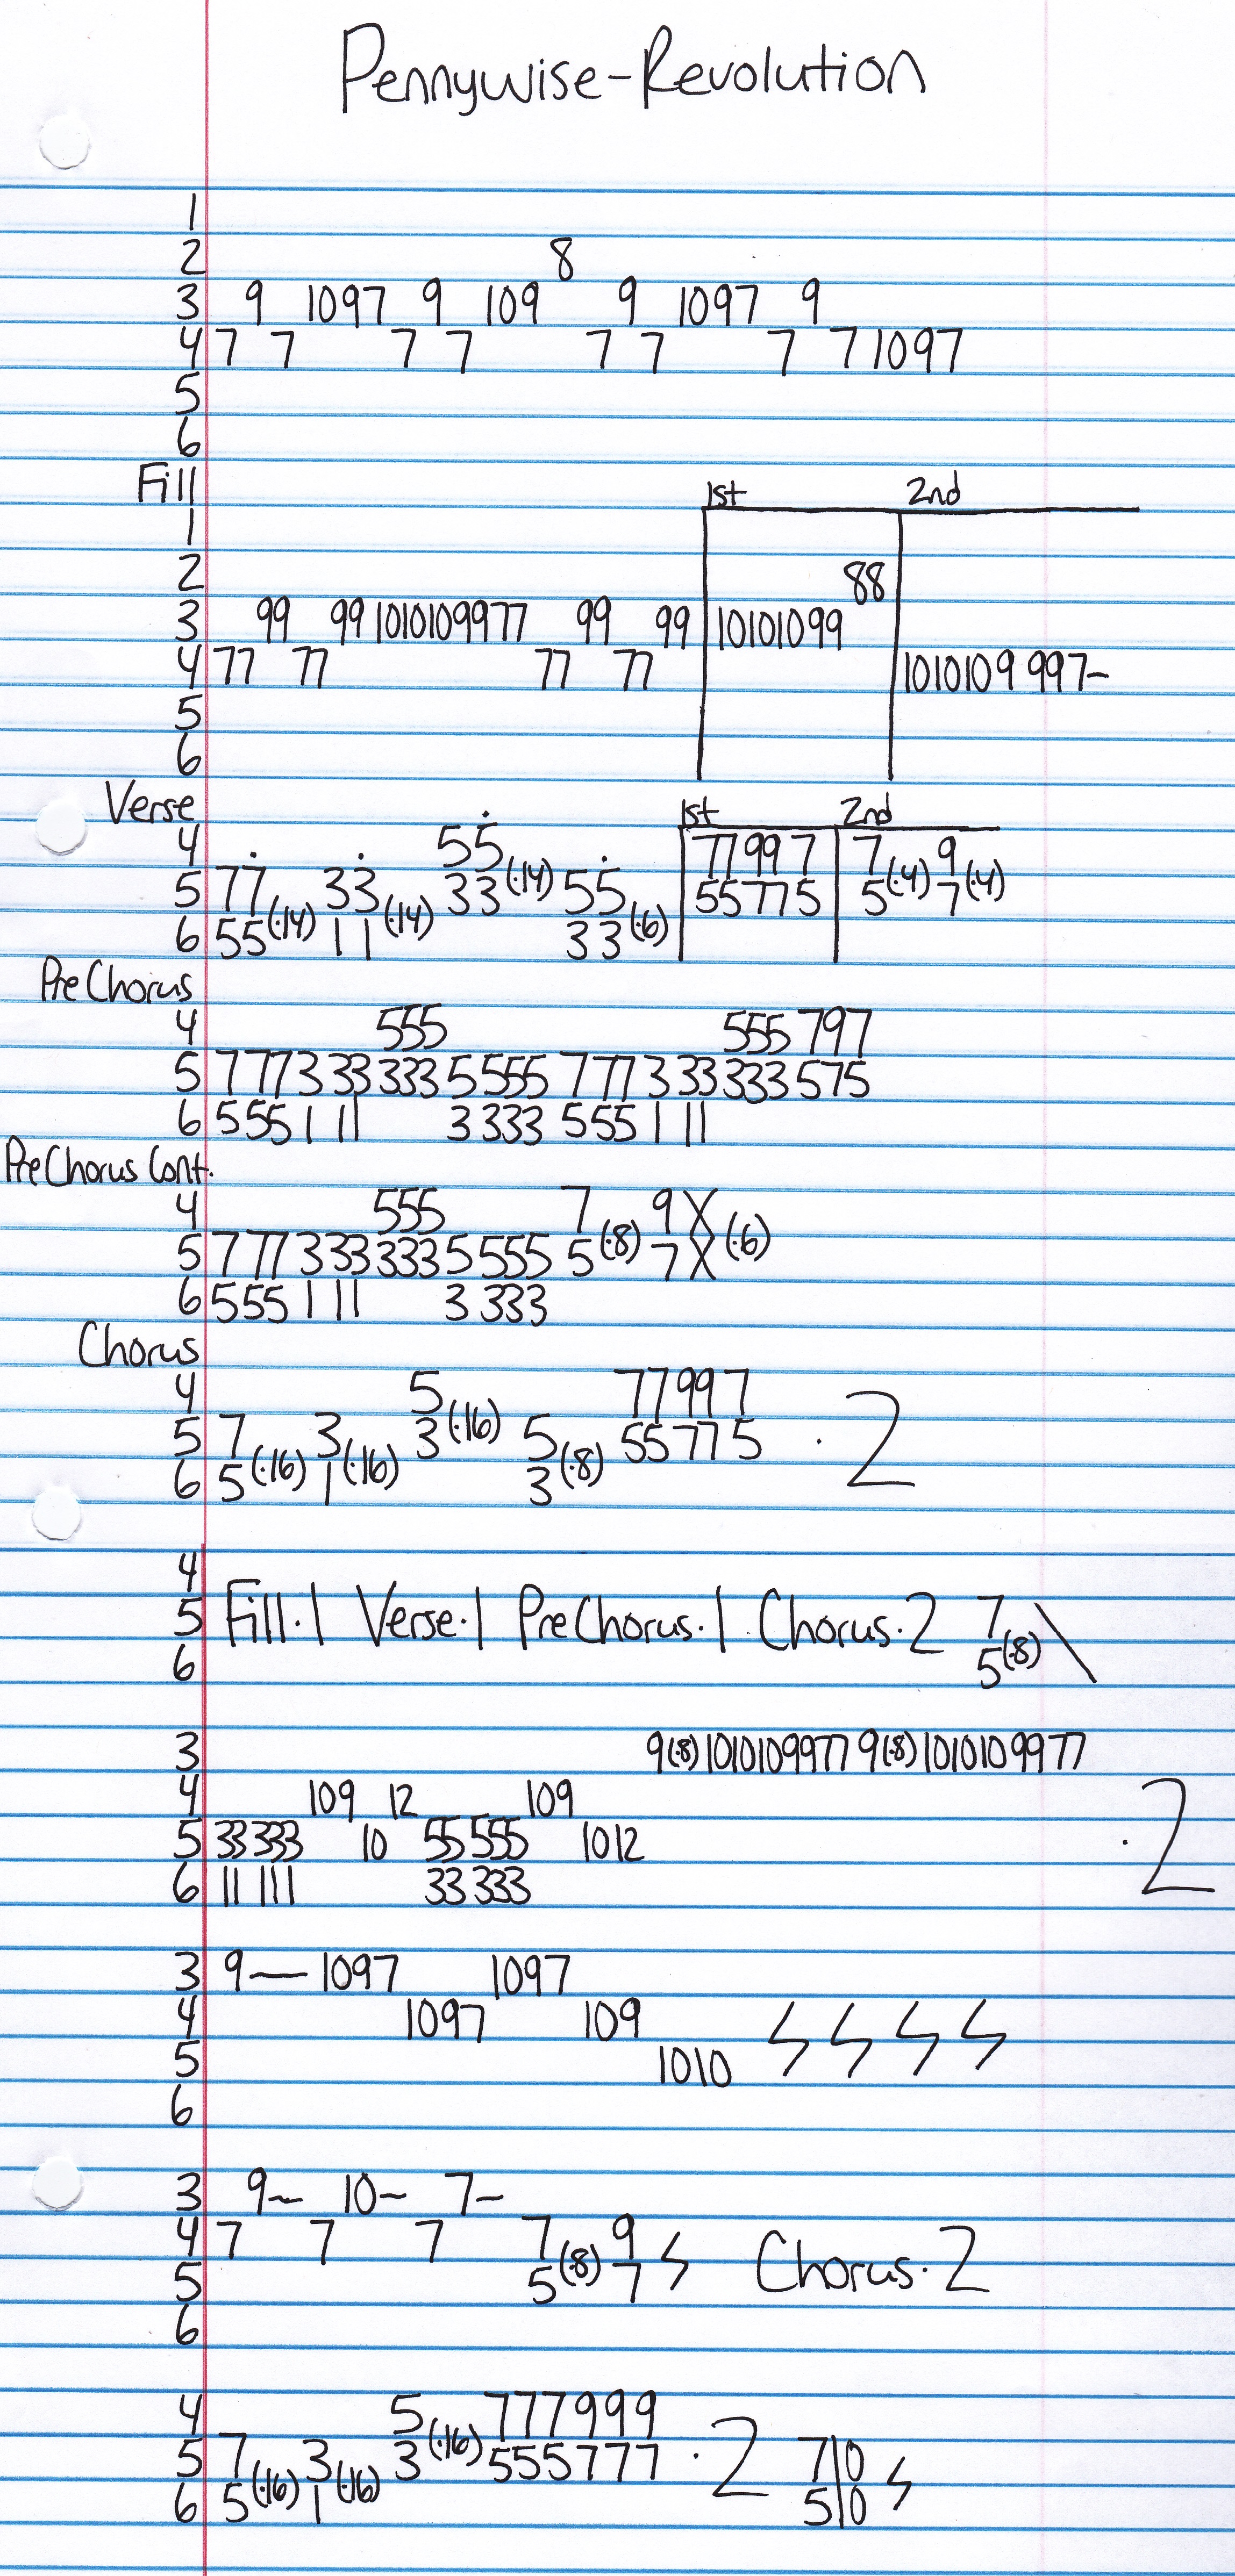 Pennywise-Revolution
1
2 8
3 9 1097 9 109 9 1097 9
4 7 7 7 7 7 7 7 7 1097
5
6
Fill 1st 2nd
1
2 88
3 99 99 1010109977 99 99 10101099
4 77 77 77 77 1010109 997-
5
6
Verse 1st 2nd
4 55 77 99 7 7 9
5 77 33 33 (·14) 55 55 77 5 5 (·4) 7 (·4)
6 55 (·14) 11 (·14) 33 (·6)
PreChorus
4 555 555 797
5 777 3 33 333 5 555 777 3 33 333 575
6 555 1 11 3 333 555 1 11
PreChorus Cont.
4 555 7 9 X
5 777 333 333 5 555 5 (·8) 7 X (·6)
6 555 1 11 3 333
Chorus
4 5 77997
5 7 3 3 (·16) 5 55 77 5 · 2
6 5 (·16) 1 (·16) 3 (·8)
4
5 Fill·1 Verse·1 PreChorus·1 Chorus·2 7 \
6 5 (·8)
3 9(·8)10101099779(·8)1010109977
4 109 12 109
5 33 333 10 55 555 1012 · 2
6 11 111 33 333
3 9— 1097 1097
4 1097 109
5 1010
6
3 9~ 10~ 7~
4 7 7 7 7 9
5 5 (·8) 7 Chorus·2
6
4 5 777999
5 7 3 3 (·16) 555777 · 2 7 10
6 5 (·16) 1 (·16) 5 10